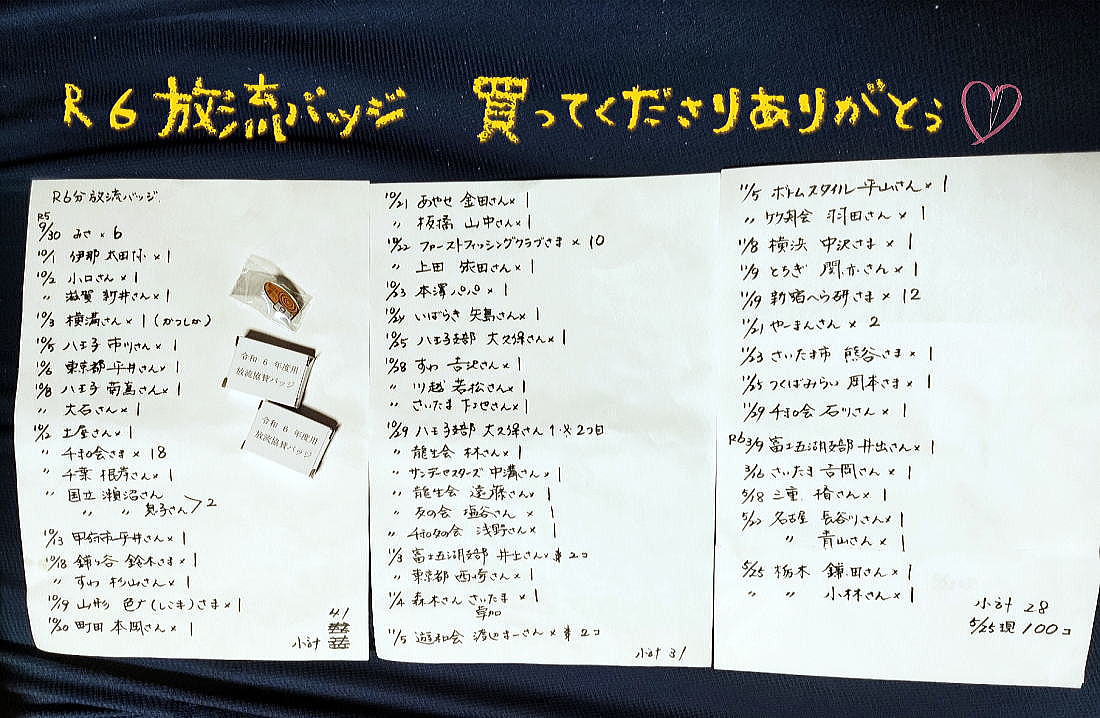 R6 放流バッジ 買ってくださりありがとう
R6分放流バッジ
R5
9/30 みさ × 6
10/1 伊那 太田 × 1
10/2 小口さん × 1
〃 滋賀 新井さん × 1
10/3 横溝さん × 1 (かつしか)
10/5 八王子 市川さん × 1
10/6 東京都 平井さん × 1
10/8 八王子 南島さん × 1
〃 大石さん × 1
土屋さん × 1
〃 千和会さま × 18
〃 千葉 根岸さん × 1
〃 国立 瀬沼さん
〃 〃 息子さん > 2
10/13 甲府市 平井さん × 1
10/18 鎌ヶ谷 鈴木さま × 1
〃 すわ 杉山さん × 1
10/19 山形 色ナ(しこな)さま × 1
10/20 町田 本岡さん × 1
41
小計
令和 6 年度用
放流協賛バッジ
令和 6 年度用
放流協賛バッジ
10/21 あやせ 金田さん × 1
〃 板橋 山中さん × 1
10/22 ファーストフィッシングクラブさま × 10
〃 上田 依田さん × 1
10/23 本澤パパ × 1
10/24 いばらき 矢島さん × 1
10/25 八王子支部 大久保さん × 1
10/28 すわ 吉沢さん × 1
〃 川越 若松さん × 1
〃 さいたま さん × 1
10/29 八王子支部 大久保さん 1 ※2コ目
〃 龍生会 林さん × 1
〃 サンデースターズ 中溝さん × 1
〃 龍生会 遠藤さん × 1
〃 夕の会 塩谷さん × 1
〃 千和夕の会 浅野さん × 1
11/3 富士五湖支部 井出さん × 2コ
〃 東京都 西崎さん × 1
11/4 森木さん さいたま × 1
草加
11/5 遊和会 渡辺まーさん × 2コ
小計 31
11/5 ボトムスタイル 平山さん × 1
〃 竹芻会 羽田さん × 1
11/8 横浜 中沢さま × 1
11/9 とちぎ 関さん × 1
11/19 新宿へら研さま × 12
11/21 やーまんさん × 2
11/23 さいたま市 熊谷さま × 1
11/25 つくばみらい 岡本さま × 1
11/29 千和会 石川さん × 1
R6 3/9 富士五湖支部 井出さん × 1
3/16 さいたま 吉岡さん × 1
5/18 三重 椿さん × 1
名古屋 長谷川さん × 1
〃 青山さん × 1
5/25 栃木 鎌田さん × 1
〃 〃 小林さん × 1
小計 28
5/25現 100コ